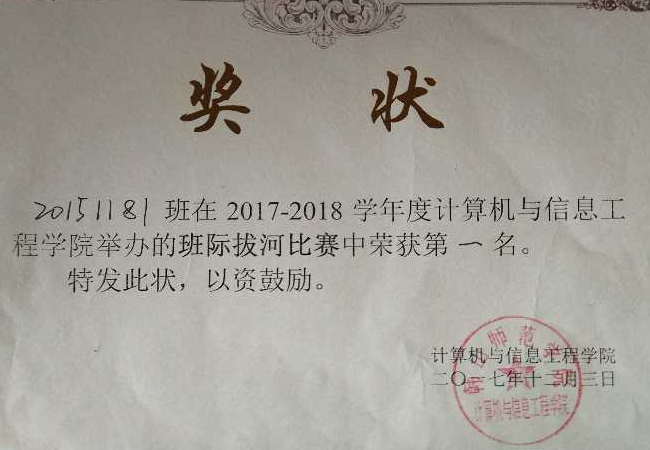 奖 状
20151181 班在 2017-2018 学年度计算机与信息工
程学院举办的班际拔河比赛中荣获第 一 名。
特发此状，以资鼓励。
计算机与信息工程学院
二〇一七年十二月三日
师范学院
计算机与信息工程学院